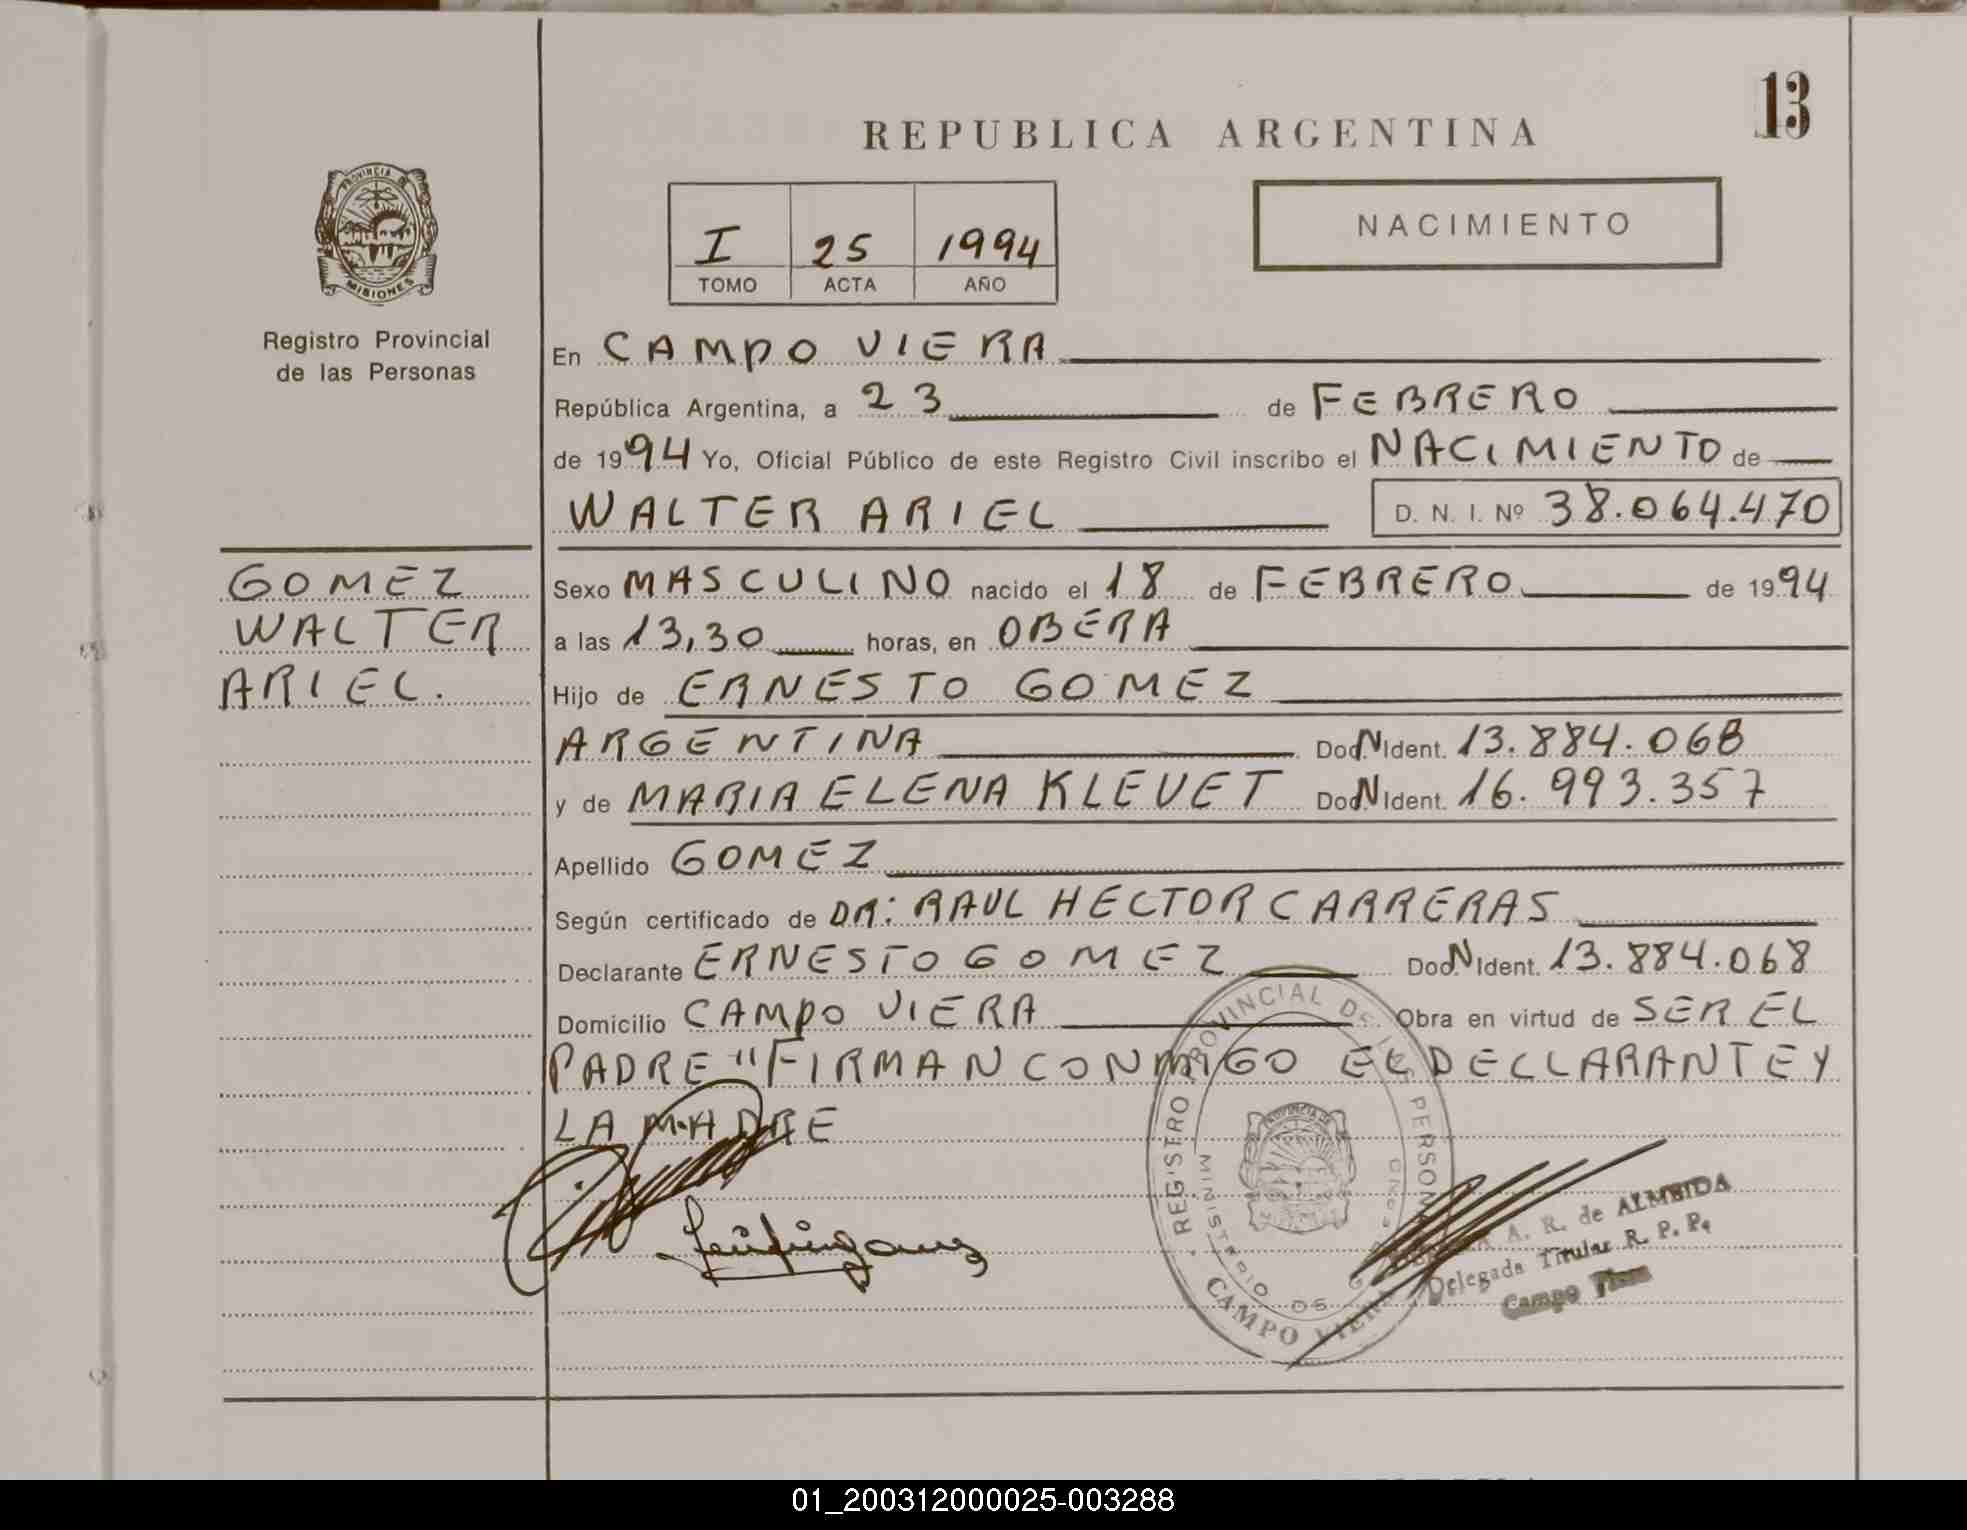 13
REPUBLICA ARGENTINA
PROVINCIA DE
MISIONES
Registro Provincial
de las Personas
I 25 1994
TOMO ACTA AÑO
NACIMIENTO
En CAMPO VIERA
República Argentina, a 23 de FEBRERO
de 1994 Yo, Oficial Público de este Registro Civil inscribo el NACIMIENTO de
WALTER ARIEL D. N. I. Nº 38.064.470
GOMEZ
WALTER
ARIEL.
Sexo MASCULINO nacido el 18 de FEBRERO de 1994
a las 13,30 horas, en OBERA
Hijo de ERNESTO GOMEZ
ARGENTINA Doc.N Ident. 13.884.068
y de MARIA ELENA KLEVET Doc.N Ident. 16.993.357
Apellido GOMEZ
Según certificado de DR: RAUL HECTOR CARRERAS
Declarante ERNESTO GOMEZ Doc.N Ident. 13.884.068
Domicilio CAMPO VIERA Obra en virtud de SER EL
PADRE "FIRMAN CONMIGO EL DECLARANTE Y
LA MADRE
REGISTRO PROVINCIAL DE LAS PERSONAS
MINISTERIO DE
CAMPO VIERA
A. R. de ALMEIDA
Delegada Titular R. P. P.
Campo Viera
01_200312000025-003288